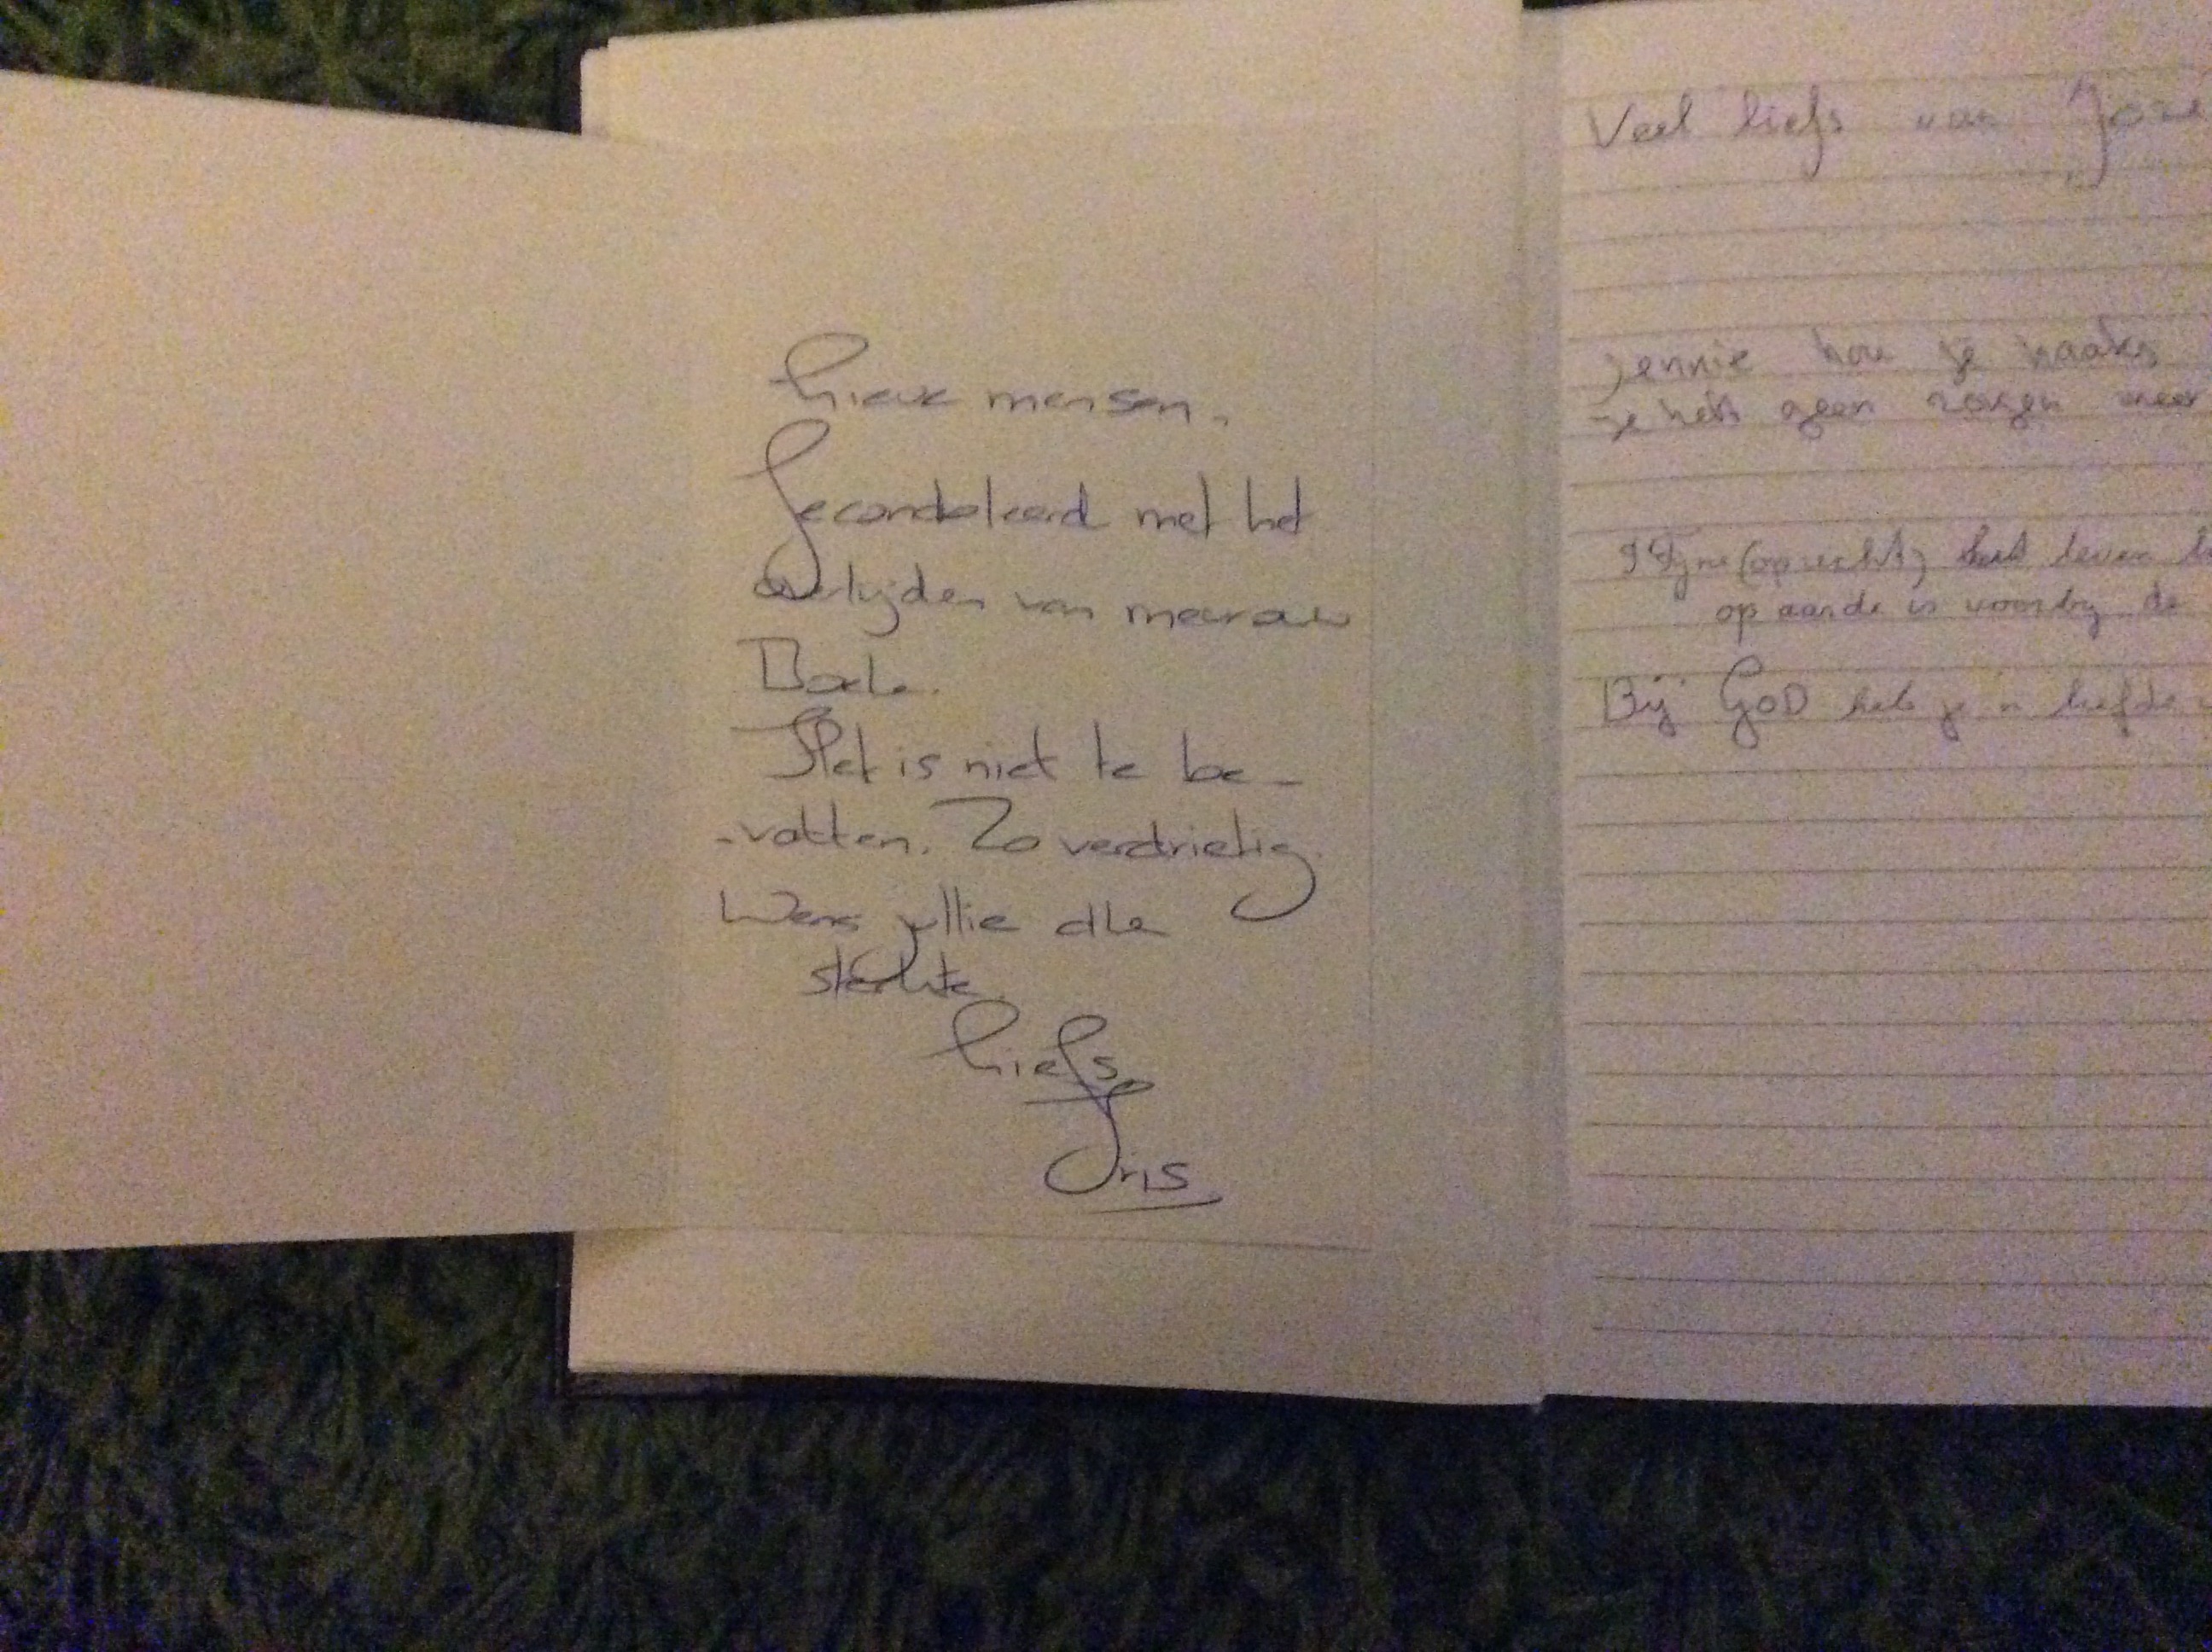 Lieve mensen,
Gecondoleerd met het
overlijden van mevrouw
Het is niet te be-
-vatten. Zo verdrietig.
Wens jullie alle
sterkte.
Liefs,
Iris
Veel liefs van
Jennie hou je haaks
je heb geen zorgen meer
(oprecht) het leven
op aarde is voorby de
Bij GOD heb je 'n liefde